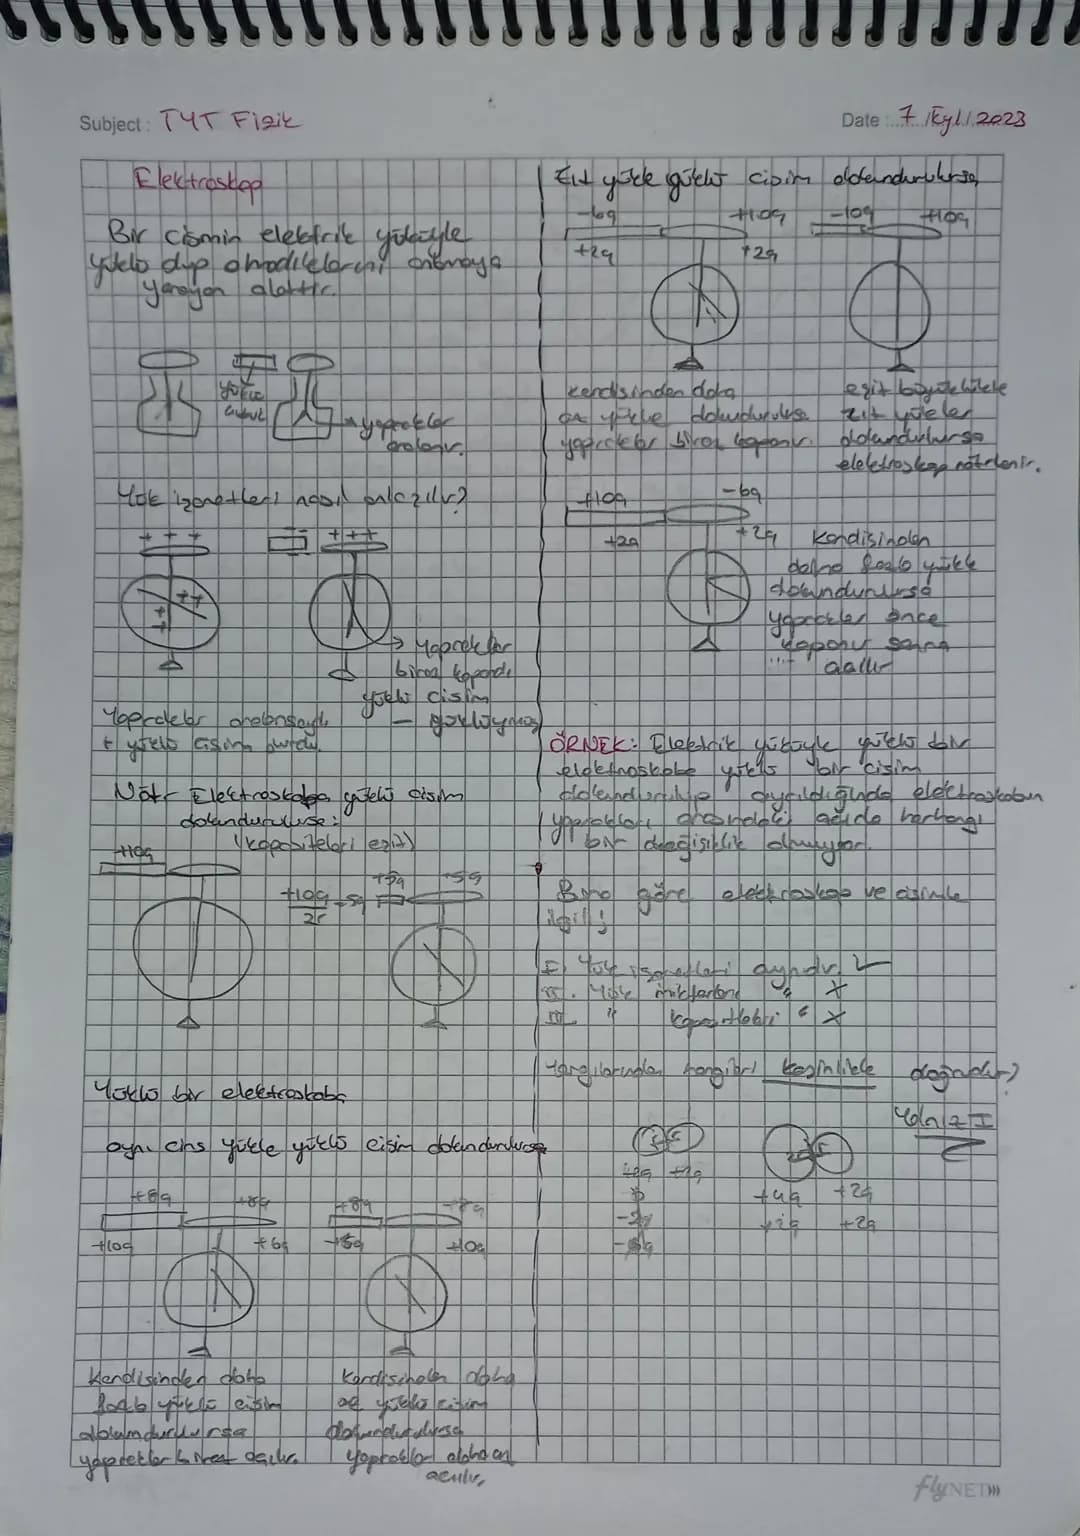 Subject: TYT Fizik
Date: 7 /Eyl/. 2023
Elektroskop
Bir cismin elektrik yüküyle
yüklü olup olmadıklarını anlamaya
yarayan alettir.
yüklü
cisim
yapraklar
aralanır.
Yük işaretleri nasıl anlaşılır?
+ + +
+++
++
+
+
→ Yapraklar
biraz kapandı
yüklü cisim
Yapraklar aralansaydı
+ yüklü cisim olurdu.
Nötr Elektroskoba yüklü cisim
dokundurulursa:
(kapasiteleri eşit)
+10q
+5q +5q
+10q/2r = 5q
Yüklü bir elektroskoba
aynı cins yükle yüklü cisim dokundurulursa
+8q +8q +8q +8q
+10q +6q +10q
Kendisinden daha
fazla yüklü cisim
dokundurulursa
yapraklar biraz açılır.
Kendisinden daha
az yüklü cisim
dokundurulursa
Yapraklar daha az
açılır.
Zıt yükle yüklü cisim dokundurulursa,
-6q +10q -10q +10q
+2q +2q
kendisinden daha
az yükle dokundurulursa
yapraklar biraz kapanır.
eşit büyüklükte
zıt yükler
dokundurulursa
elektroskop nötrlenir.
+10q -6q
+2q +2q
Kendisinden
daha fazla yükle
dokundurulursa
yapraklar önce
kapanır sonra
açılır
ÖRNEK: Elektrik yüküyle yüklü bir
elektroskoba yüklü bir cisim
dokundurulup ayrıldığında elektroskobun
yaprakları arasındaki açıda herhangi
bir değişiklik olmuyor.
Buna göre elektroskop ve cisimle
ilgili;
I) Yük işaretleri aynıdır. ✓
II. Yük miktarları " X
III. " kapasiteleri " X
Yargılarından hangileri kesinlikle doğrudur?
Yalnız I
+2q +2q
+4q +2q
+2q
flyNET